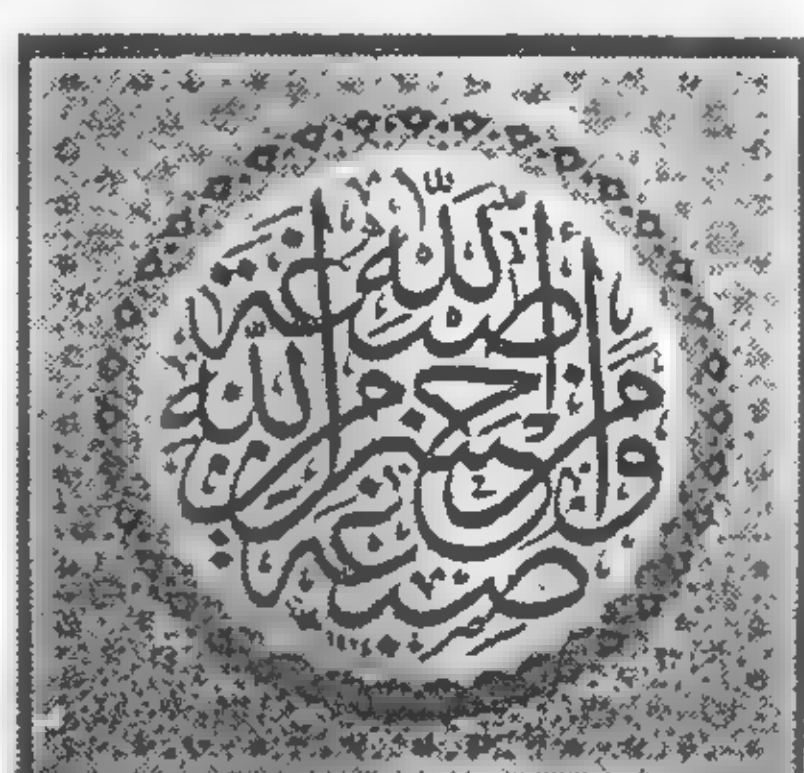 صبغة الله
ومن أحسن من الله
صبغة